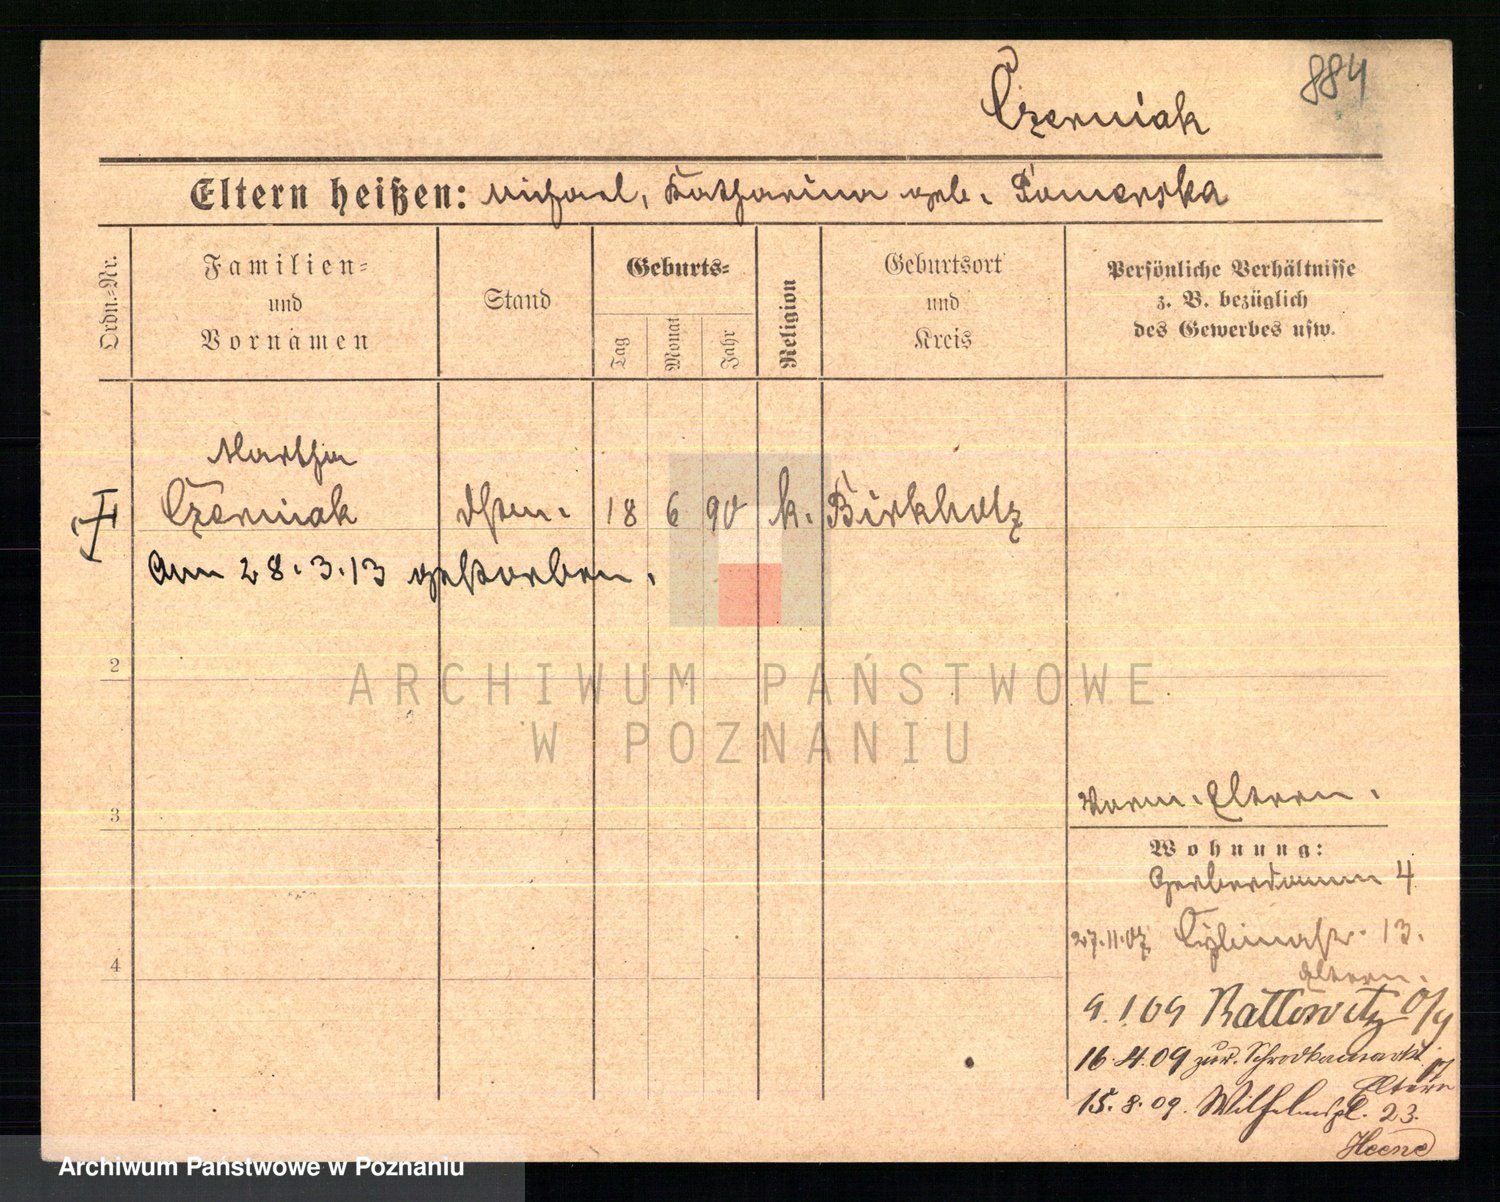 884
Czerniak
Eltern heißen: Michael, Katharina geb. Pomerska
Ordn.-Nr.
Familien-
und
Vornamen
Stand
Geburts-
Tag
Monat
Jahr
Religion
Geburtsort
und
Kreis
Persönliche Verhältnisse
z. B. bezüglich
des Gewerbes usw.
Martha
Czerniak
18 6 90 k. Birkholz
Am 28.3.13 gestorben.
2
ARCHIWUM PAŃSTWOWE
W POZNANIU
3
4
Eltern.
Wohnung:
Gerberdamm 4
27.11.07 Cybinastr. 13.
Eltern.
9.1.09 Kattowitz O/S
16.4.09 zur. Schrodkamarkt
Eltern
15.8.09. Wilhelmspl. 23.
Archiwum Państwowe w Poznaniu